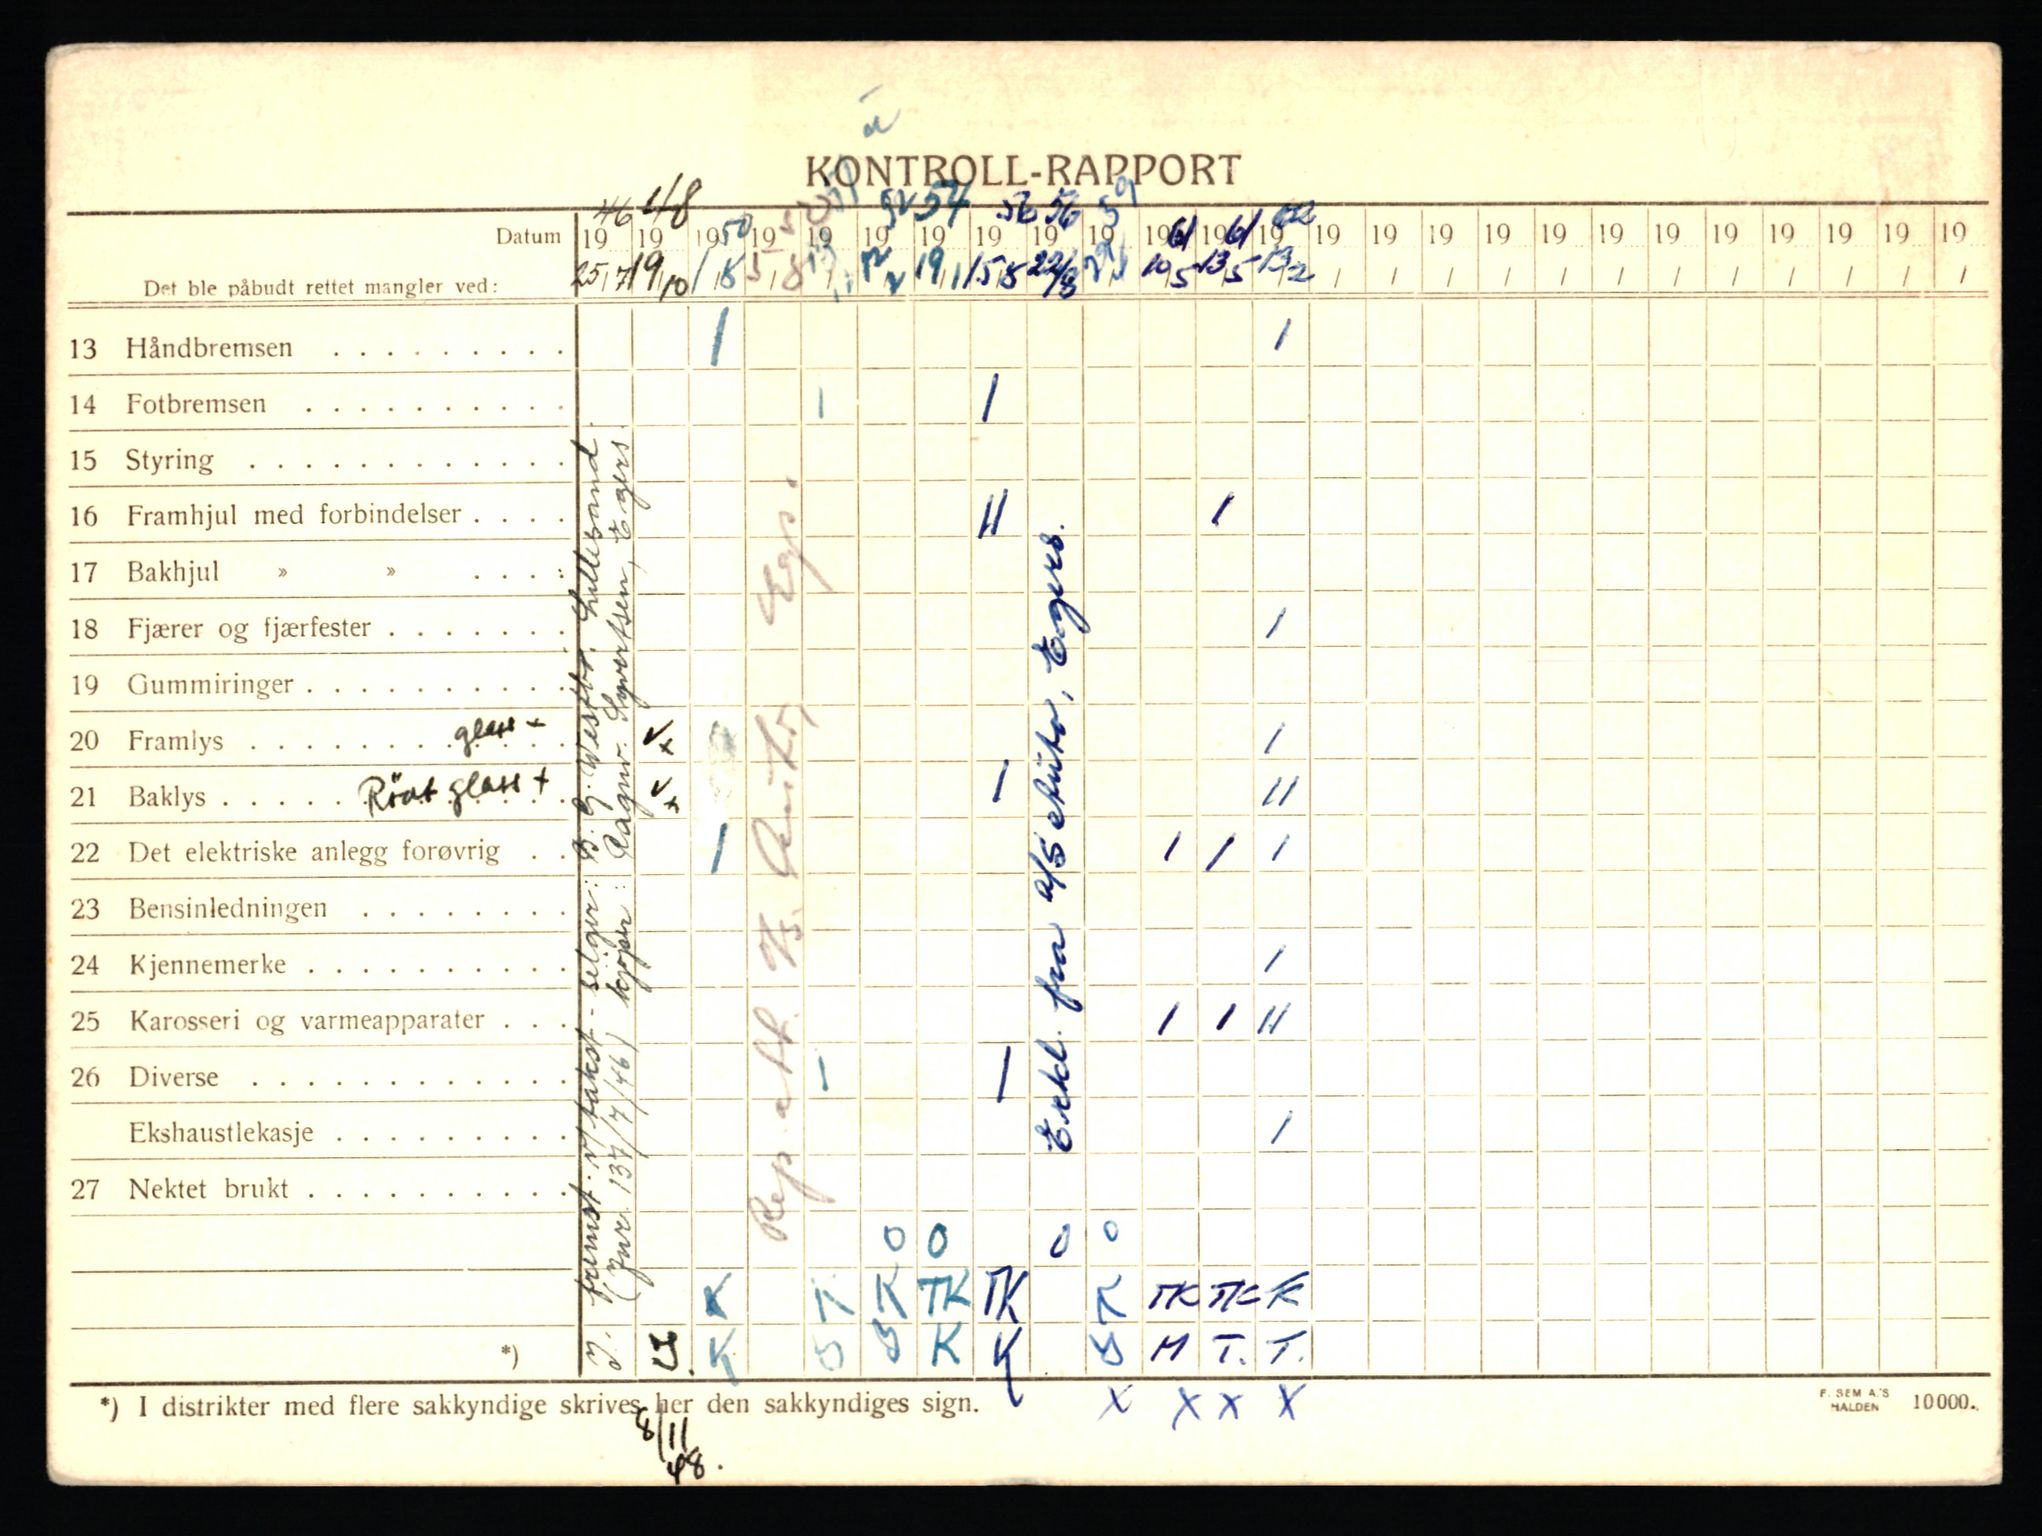 KONTROLL-RAPPORT
46 48 50 51 52 54 56 56 59 61 61 62
Datum 19 19 19 19 19 19 19 19 19 19 19 19 19 19 19 19 19 19 19 19 19 19 19 19 19
Det ble påbudt rettet mangler ved: 25/7 19/10 1/8 5/8 12/2 19/1 15/8 22/8 10/5 13/5 13/2
13 Håndbremsen I I
14 Fotbremsen I I
15 Styring
16 Framhjul med forbindelser II I
17 Bakhjul » »
18 Fjærer og fjærfester I
19 Gummiringer
20 Framlys glass + v + I
21 Baklys Rödt glass + v + I II
22 Det elektriske anlegg forøvrig I I I I
23 Bensinledningen
24 Kjennemerke I
25 Karosseri og varmeapparater I I II
26 Diverse I I
Ekshaustlekasje I
27 Nektet brukt
0 0 0 0
K K K TK TK K TK TK K
*) K K K M T. T.
framst. v/ takst - selger: B. G. Westbö, Lillesand.
(Jnr. 137/7/46) kjöper: Ragnv. Syvertsen, Egers.
Rep att. fra Egs.
Erkl. fra A/S Auto, Egers.
*) I distrikter med flere sakkyndige skrives her den sakkyndiges sign.
X X X X
8/11
48.
F. SEM A.S
HALDEN
10 000.